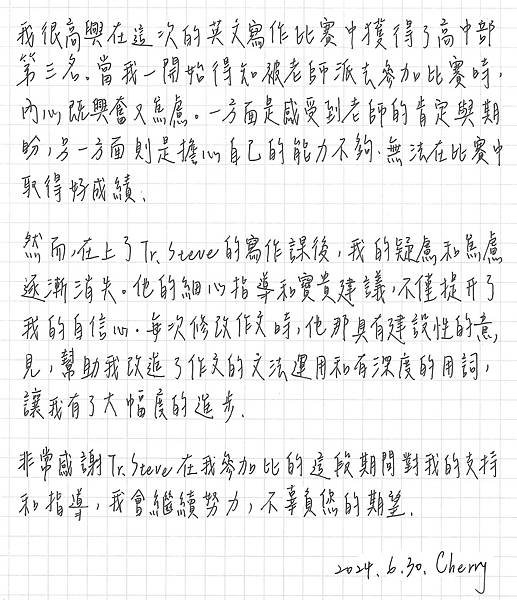 我很高興在這次的英文寫作比賽中獲得了高中部
第三名。當我一開始得知被老師派去參加比賽時，
內心既興奮又焦慮。一方面是感受到老師的肯定與期
盼，另一方面則是擔心自己的能力不夠，無法在比賽中
取得好成績.
然而，在上了Tr. Steve的寫作課後，我的疑慮和焦慮
逐漸消失。他的細心指導和寶貴建議，不僅提升了
我的自信心。每次修改作文時，他那具有建設性的意
見，幫助我改進了作文的文法運用和有深度的用詞，
讓我有了大幅度的進步.
非常感謝Tr. Steve在我參加比的這段期間對我的支持
和指導，我會繼續努力，不辜負您的期望.
2024. 6. 30. Cherry